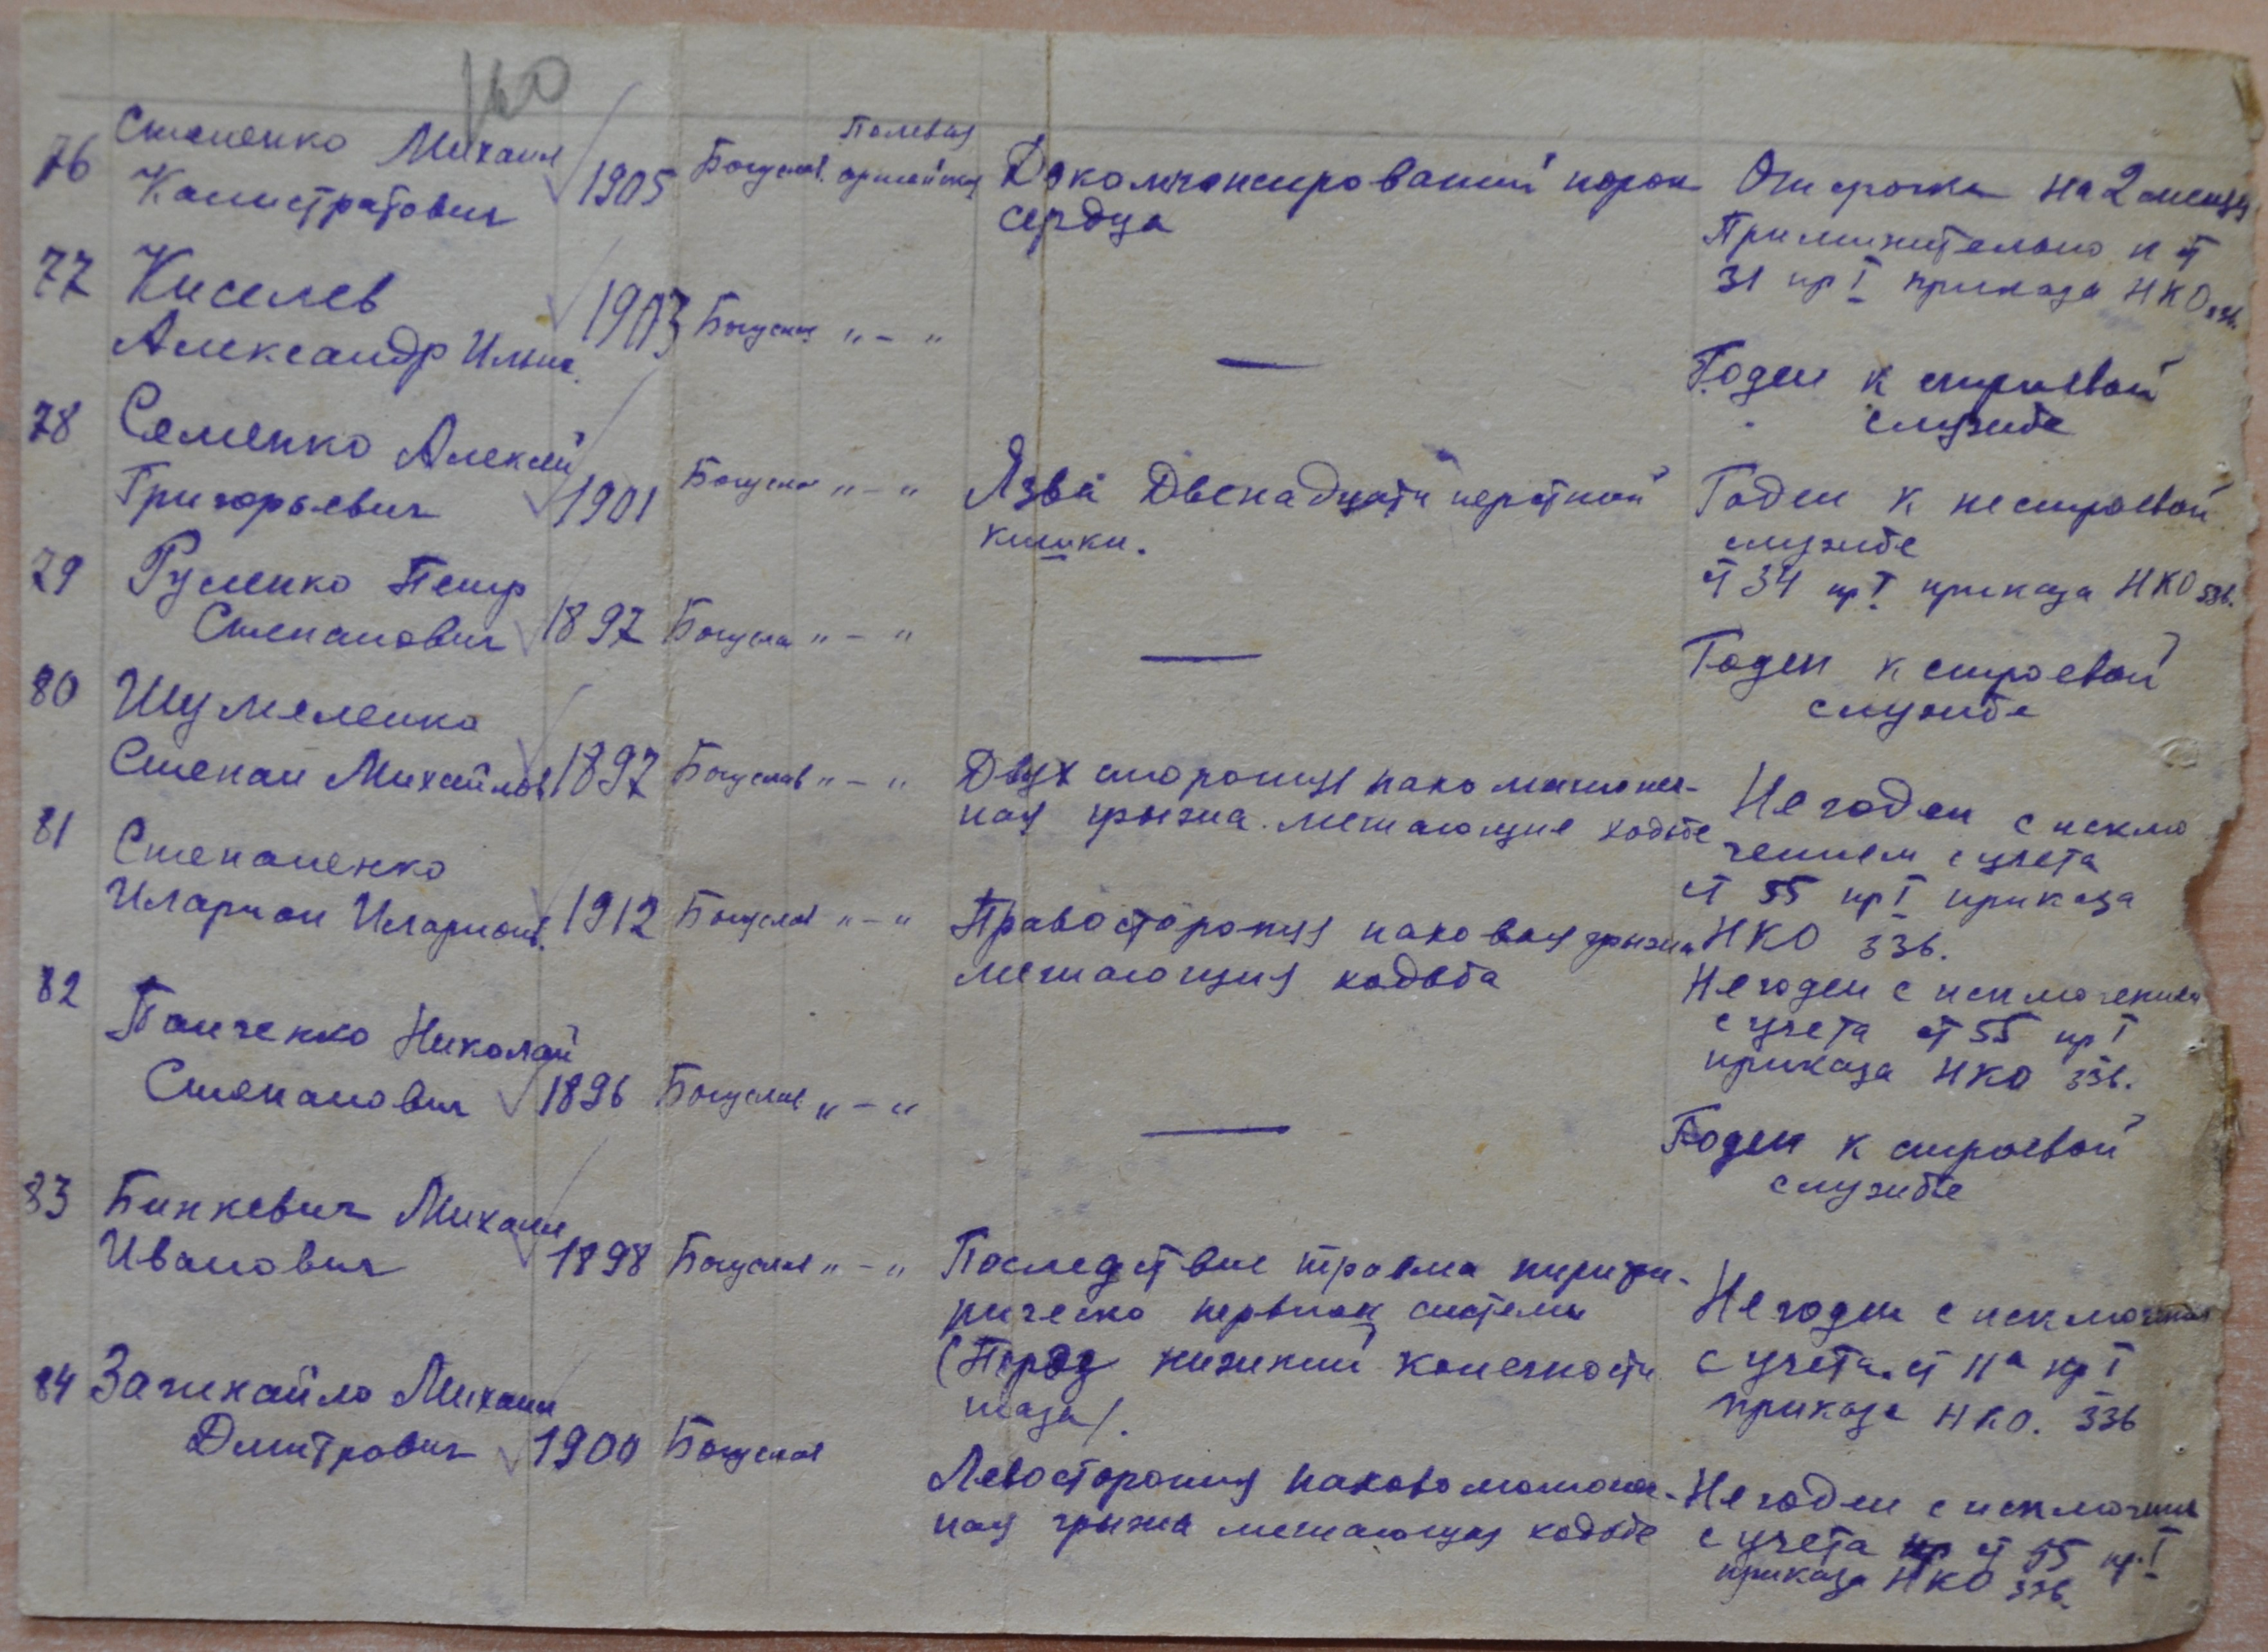 160
76 Степенко Михаил Калистратович 1905 Богуслав. Полевая армейская Декомпенсированный порок сердца
Отсрочка на 2 месяца
Применительно к ст
31 гр I приказа НКО 336.
77 Киселев Александр Ильич. 1903 Богуслав " - " —
Годен к строевой
службе
78 Семенко Алексей Григорьевич 1901 Богуслав " - " Язва Двенадцати перстной кишки.
Годен к нестроевой
службе
ст 34 гр I приказа НКО 336.
79 Русенко Петр Степанович 1897 Богуслав " - " —
Годен к строевой
службе
80 Шумеленко Степан Михайлов 1897 Богуслав " - " Двух стороняя пахо мошоноч-
ная грыжа. мешающие ходьбе
Не годен с исклю
чением с учета
ст 55 гр I приказа
НКО 336.
81 Степаненко Иларион Иларионов. 1912 Богуслав " - " Правостороняя паховая грыжа
мешающия ходьба
Не годен с исключением
с учета ст 55 гр I
приказа НКО 336.
82 Панченко Николай Степанович 1896 Богуслав " - " —
Годен к строевой
службе
83 Бинкевич Михаил Иванович 1898 Богуслав " - " Последствие травма перифи-
рическо нервной системы
(Перед нижний конечности
таза).
Не годен с исключением
с учета. ст 11а гр I
приказа НКО. 336
84 Зачихайло Михаил Дмитрович 1900 Богуслав Левостороняя паховомошоноч-
ная грыжа мешающая ходьбе
Не годен с исключением
с учета ст 55 гр. I
приказа НКО 336.